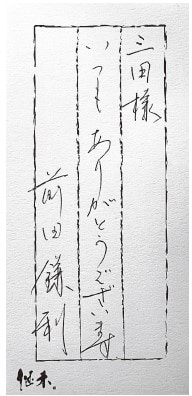 三田様
いつもありがとうございます
前田鎌利